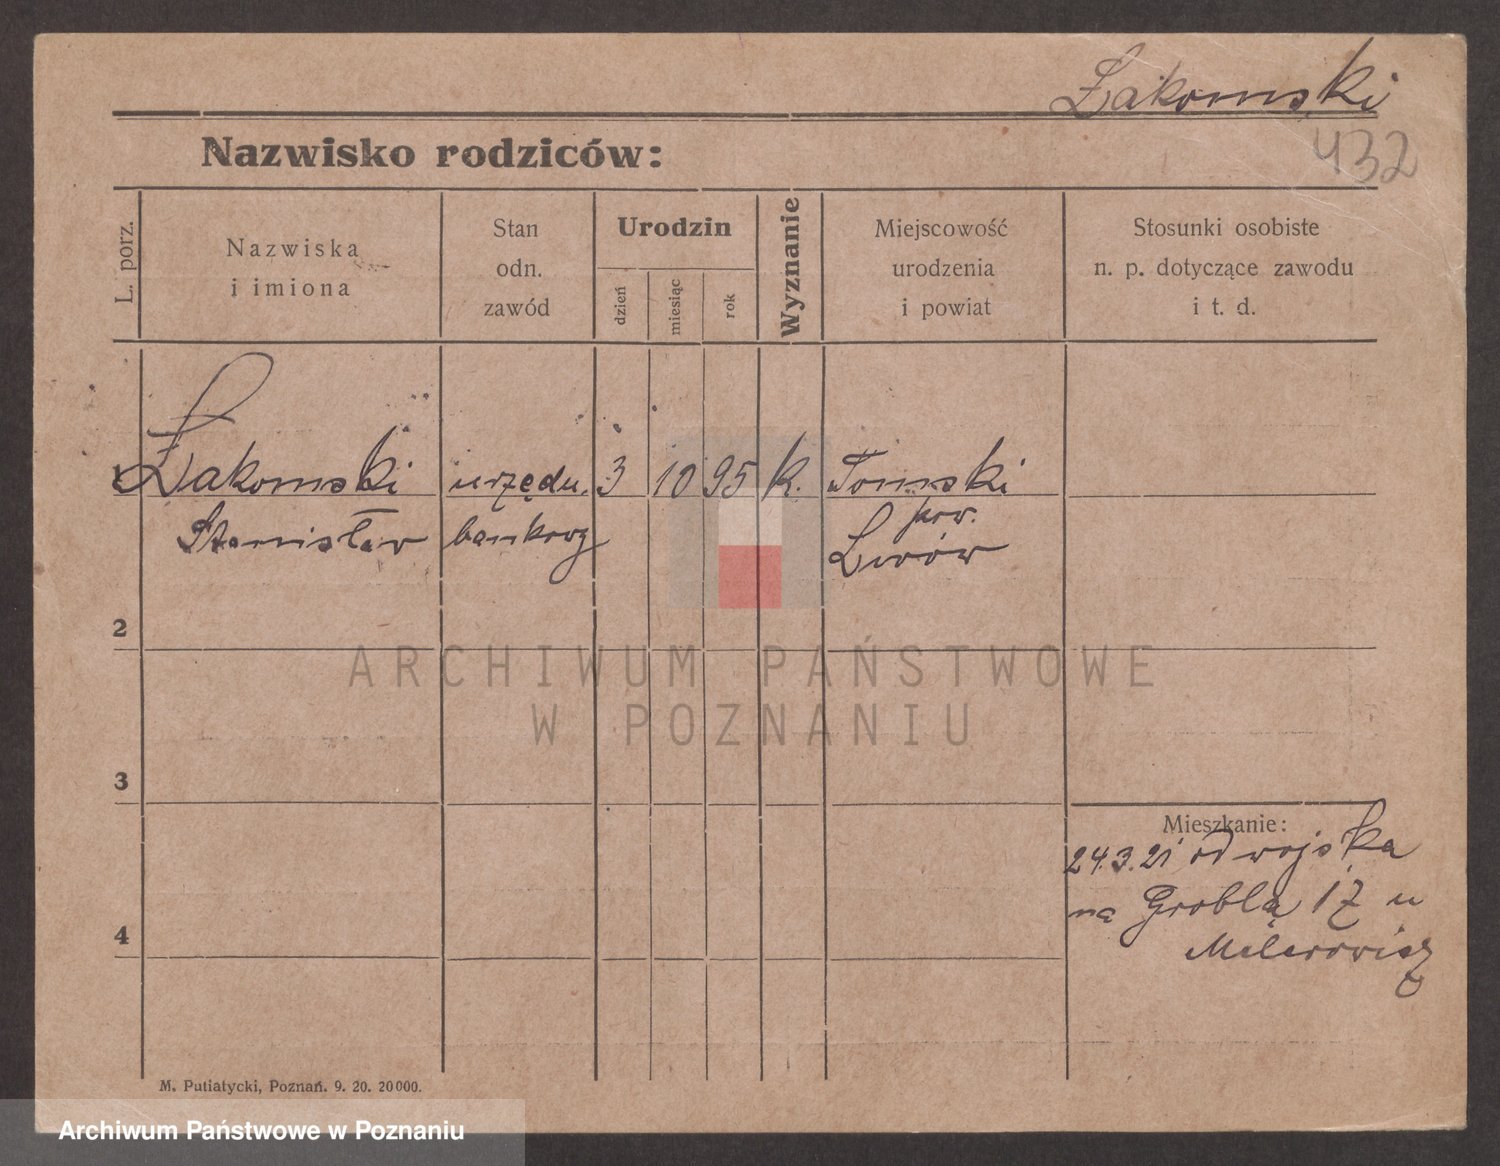 Łakomski
432
Nazwisko rodziców:
L. porz.
Nazwiska
i imiona
Stan
odn.
zawód
Urodzin
dzień
miesiąc
rok
Wyznanie
Miejscowość
urodzenia
i powiat
Stosunki osobiste
n. p. dotyczące zawodu
i t. d.
1 Łakomski urzędn. 3 10 95 k. Tomski
Stanisław bankowy pow.
Lwów
2
3
4
Mieszkanie:
24.3.21 od wojska
na Groblą 17 u
M. Putiatycki, Poznań. 9. 20. 20 000.
ARCHIWUM PAŃSTWOWE
W POZNANIU
Archiwum Państwowe w Poznaniu